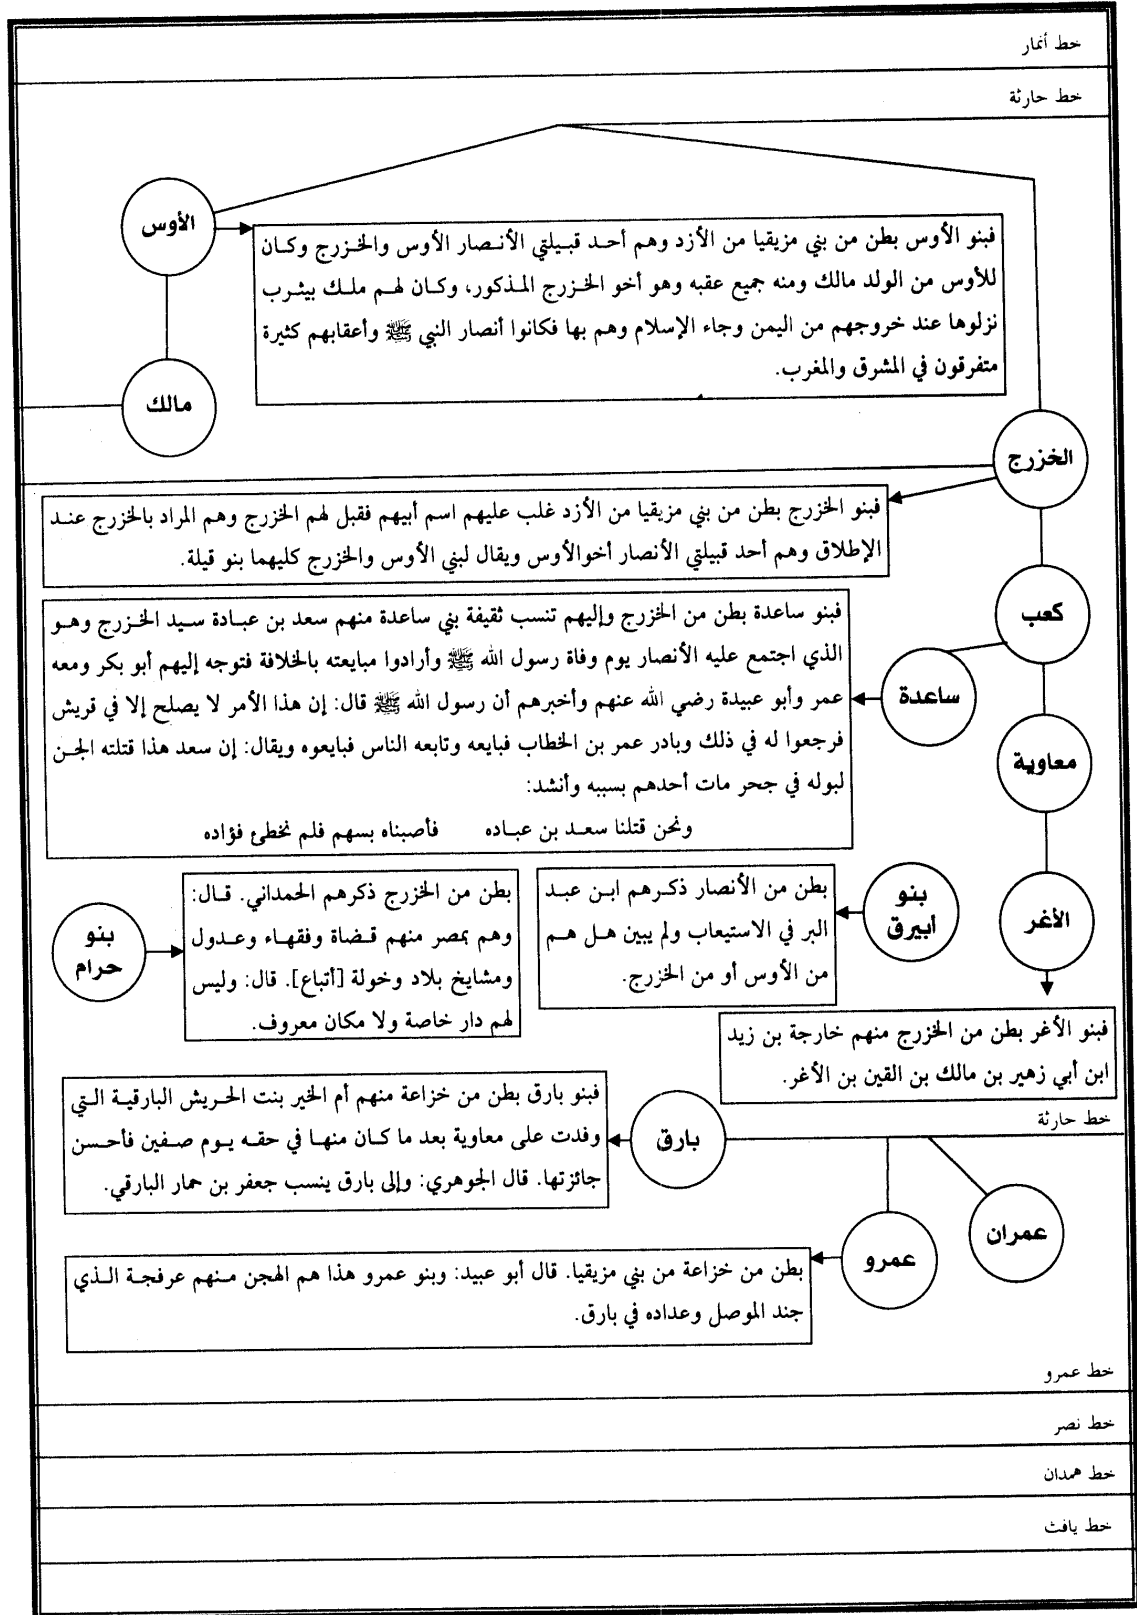 خط أنمار
خط حارثة
الأوس
فبنو الأوس بطن من بني مزيقيا من الأزد وهم أحد قبيلتي الأنصار الأوس والخزرج وكان
للأوس من الولد مالك ومنه جميع عقبه وهو أخو الخزرج المذكور، وكان لهم ملك بيثرب
نزلوها عند خروجهم من اليمن وجاء الإسلام وهم بها فكانوا أنصار النبي ﷺ وأعقابهم كثيرة
متفرقون في المشرق والمغرب.
مالك
الخزرج
فبنو الخزرج بطن من بني مزيقيا من الأزد غلب عليهم اسم أبيهم فقبل لهم الخزرج وهم المراد بالخزرج عند
الإطلاق وهم أحد قبيلتي الأنصار أخوالأوس ويقال لبني الأوس والخزرج كليهما بنو قيلة.
كعب
ساعدة
فبنو ساعدة بطن من الخزرج وإليهم تنسب ثقيفة بني ساعدة منهم سعد بن عبادة سيد الخزرج وهو
الذي اجتمع عليه الأنصار يوم وفاة رسول الله ﷺ وأرادوا مبايعته بالخلافة فتوجه إليهم أبو بكر ومعه
عمر وأبو عبيدة رضي الله عنهم وأخبرهم أن رسول الله ﷺ قال: إن هذا الأمر لا يصلح إلا في قريش
فرجعوا له في ذلك وبادر عمر بن الخطاب فبايعه وتابعه الناس فبايعوه ويقال: إن سعد هذا قتلته الجن
لبوله في جحر مات أحدهم بسببه وأنشد:
ونحن قتلنا سعد بن عباده فأصبناه بسهم فلم نخطئ فؤاده
معاوية
الأغر
بنو
أبيرق
بطن من الأنصار ذكرهم ابن عبد
البر في الاستيعاب ولم يبين هل هم
من الأوس أو من الخزرج.
بطن من الخزرج ذكرهم الحمداني. قال:
وهم بمصر منهم قضاة وفقهاء وعدول
ومشايخ بلاد وخولة [أتباع]. قال: وليس
لهم دار خاصة ولا مكان معروف.
بنو
حرام
فبنو الأغر بطن من الخزرج منهم خارجة بن زيد
ابن أبي زهير بن مالك بن القين بن الأغر.
خط حارثة
بارق
فبنو بارق بطن من خزاعة منهم أم الخير بنت الحريش البارقية التي
وفدت على معاوية بعد ما كان منها في حقه يوم صفين فأحسن
جائزتها. قال الجوهري: وإلى بارق ينسب جعفر بن حمار البارقي.
عمران
عمرو
بطن من خزاعة من بني مزيقيا. قال أبو عبيد: وبنو عمرو هذا هم الهجن منهم عرفجة الذي
جند الموصل وعداده في بارق.
خط عمرو
خط نصر
خط همدان
خط يافث